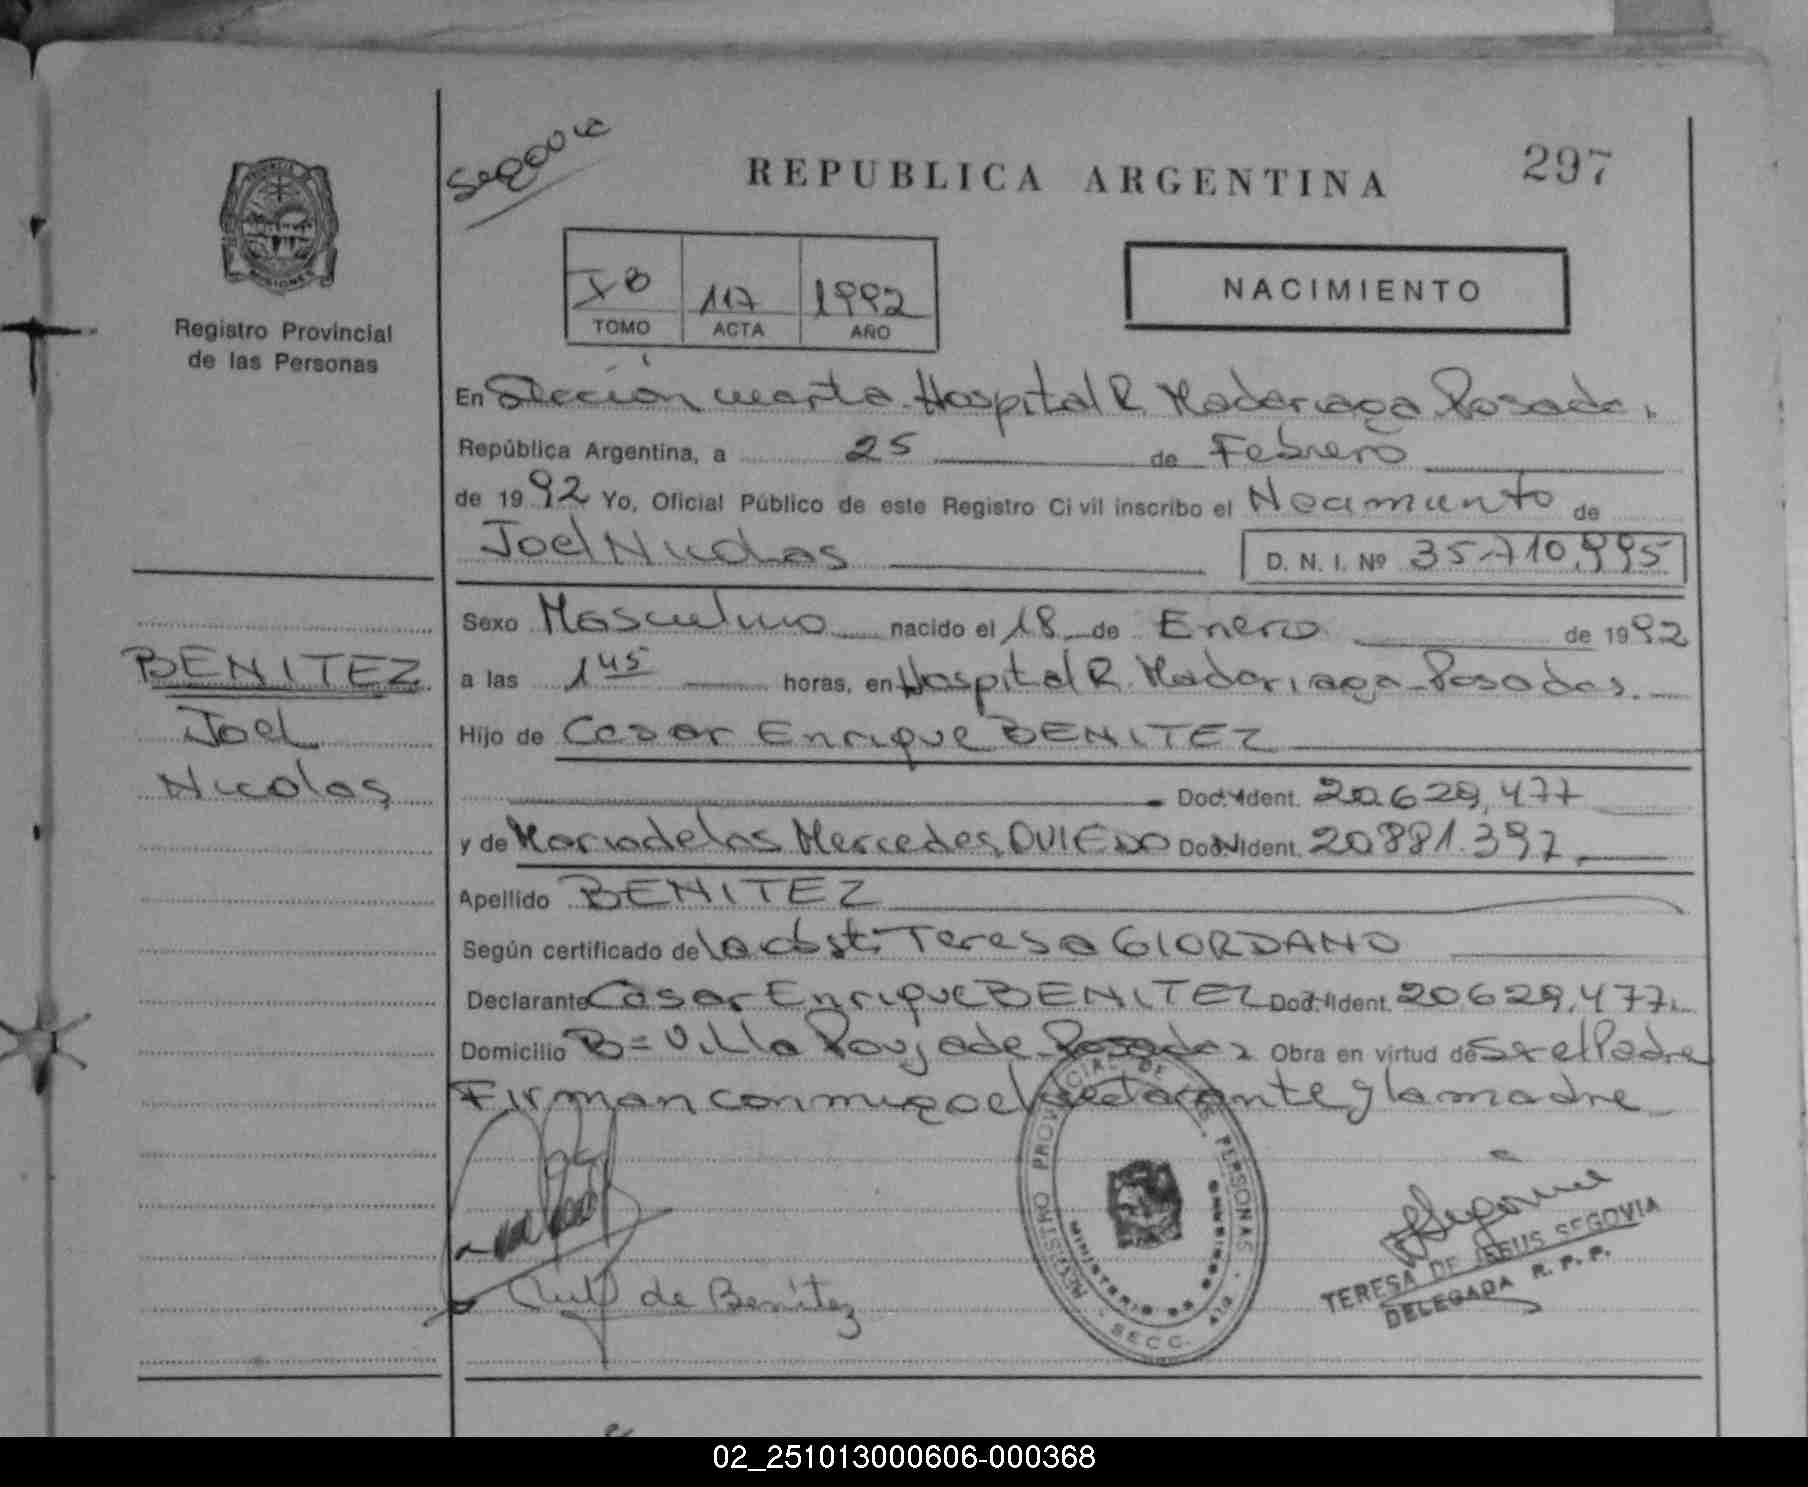 Segovia
REPUBLICA ARGENTINA
297
Registro Provincial
de las Personas
IB 117 1992
TOMO ACTA AÑO
NACIMIENTO
En Sección cuarta Hospital R. Madariaga Posadas.
República Argentina, a 25 de Febrero
de 1992 Yo, Oficial Público de este Registro Civil inscribo el Nacimiento de
Joel Nicolas D. N. I. Nº 35.710.995
Sexo Masculino nacido el 18 de Enero de 1992
BENITEZ
Joel
Nicolas
a las 1 45 horas, en Hospital R. Madariaga - Posadas.
Hijo de Cesar Enrique BENITEZ
Doc. Ident. 20.629.477
y de Maria de las Mercedes OVIEDO Doc. Ident. 20.881.397
Apellido BENITEZ
Según certificado de la obst. Teresa GIORDANO
Declarante Cesar Enrique BENITEZ Doc. Ident. 20.629.477.
Domicilio Bº Villa Poujade - Posadas Obra en virtud de ser el Padre
Firman conmigo el declarante y la madre
de Benítez
REGISTRO PROVINCIAL DE LAS PERSONAS
MINISTERIO DE GOBIERNO
SECC.
TERESA DE JESUS SEGOVIA
DELEGADA R. P. P.
02_251013000606-000368